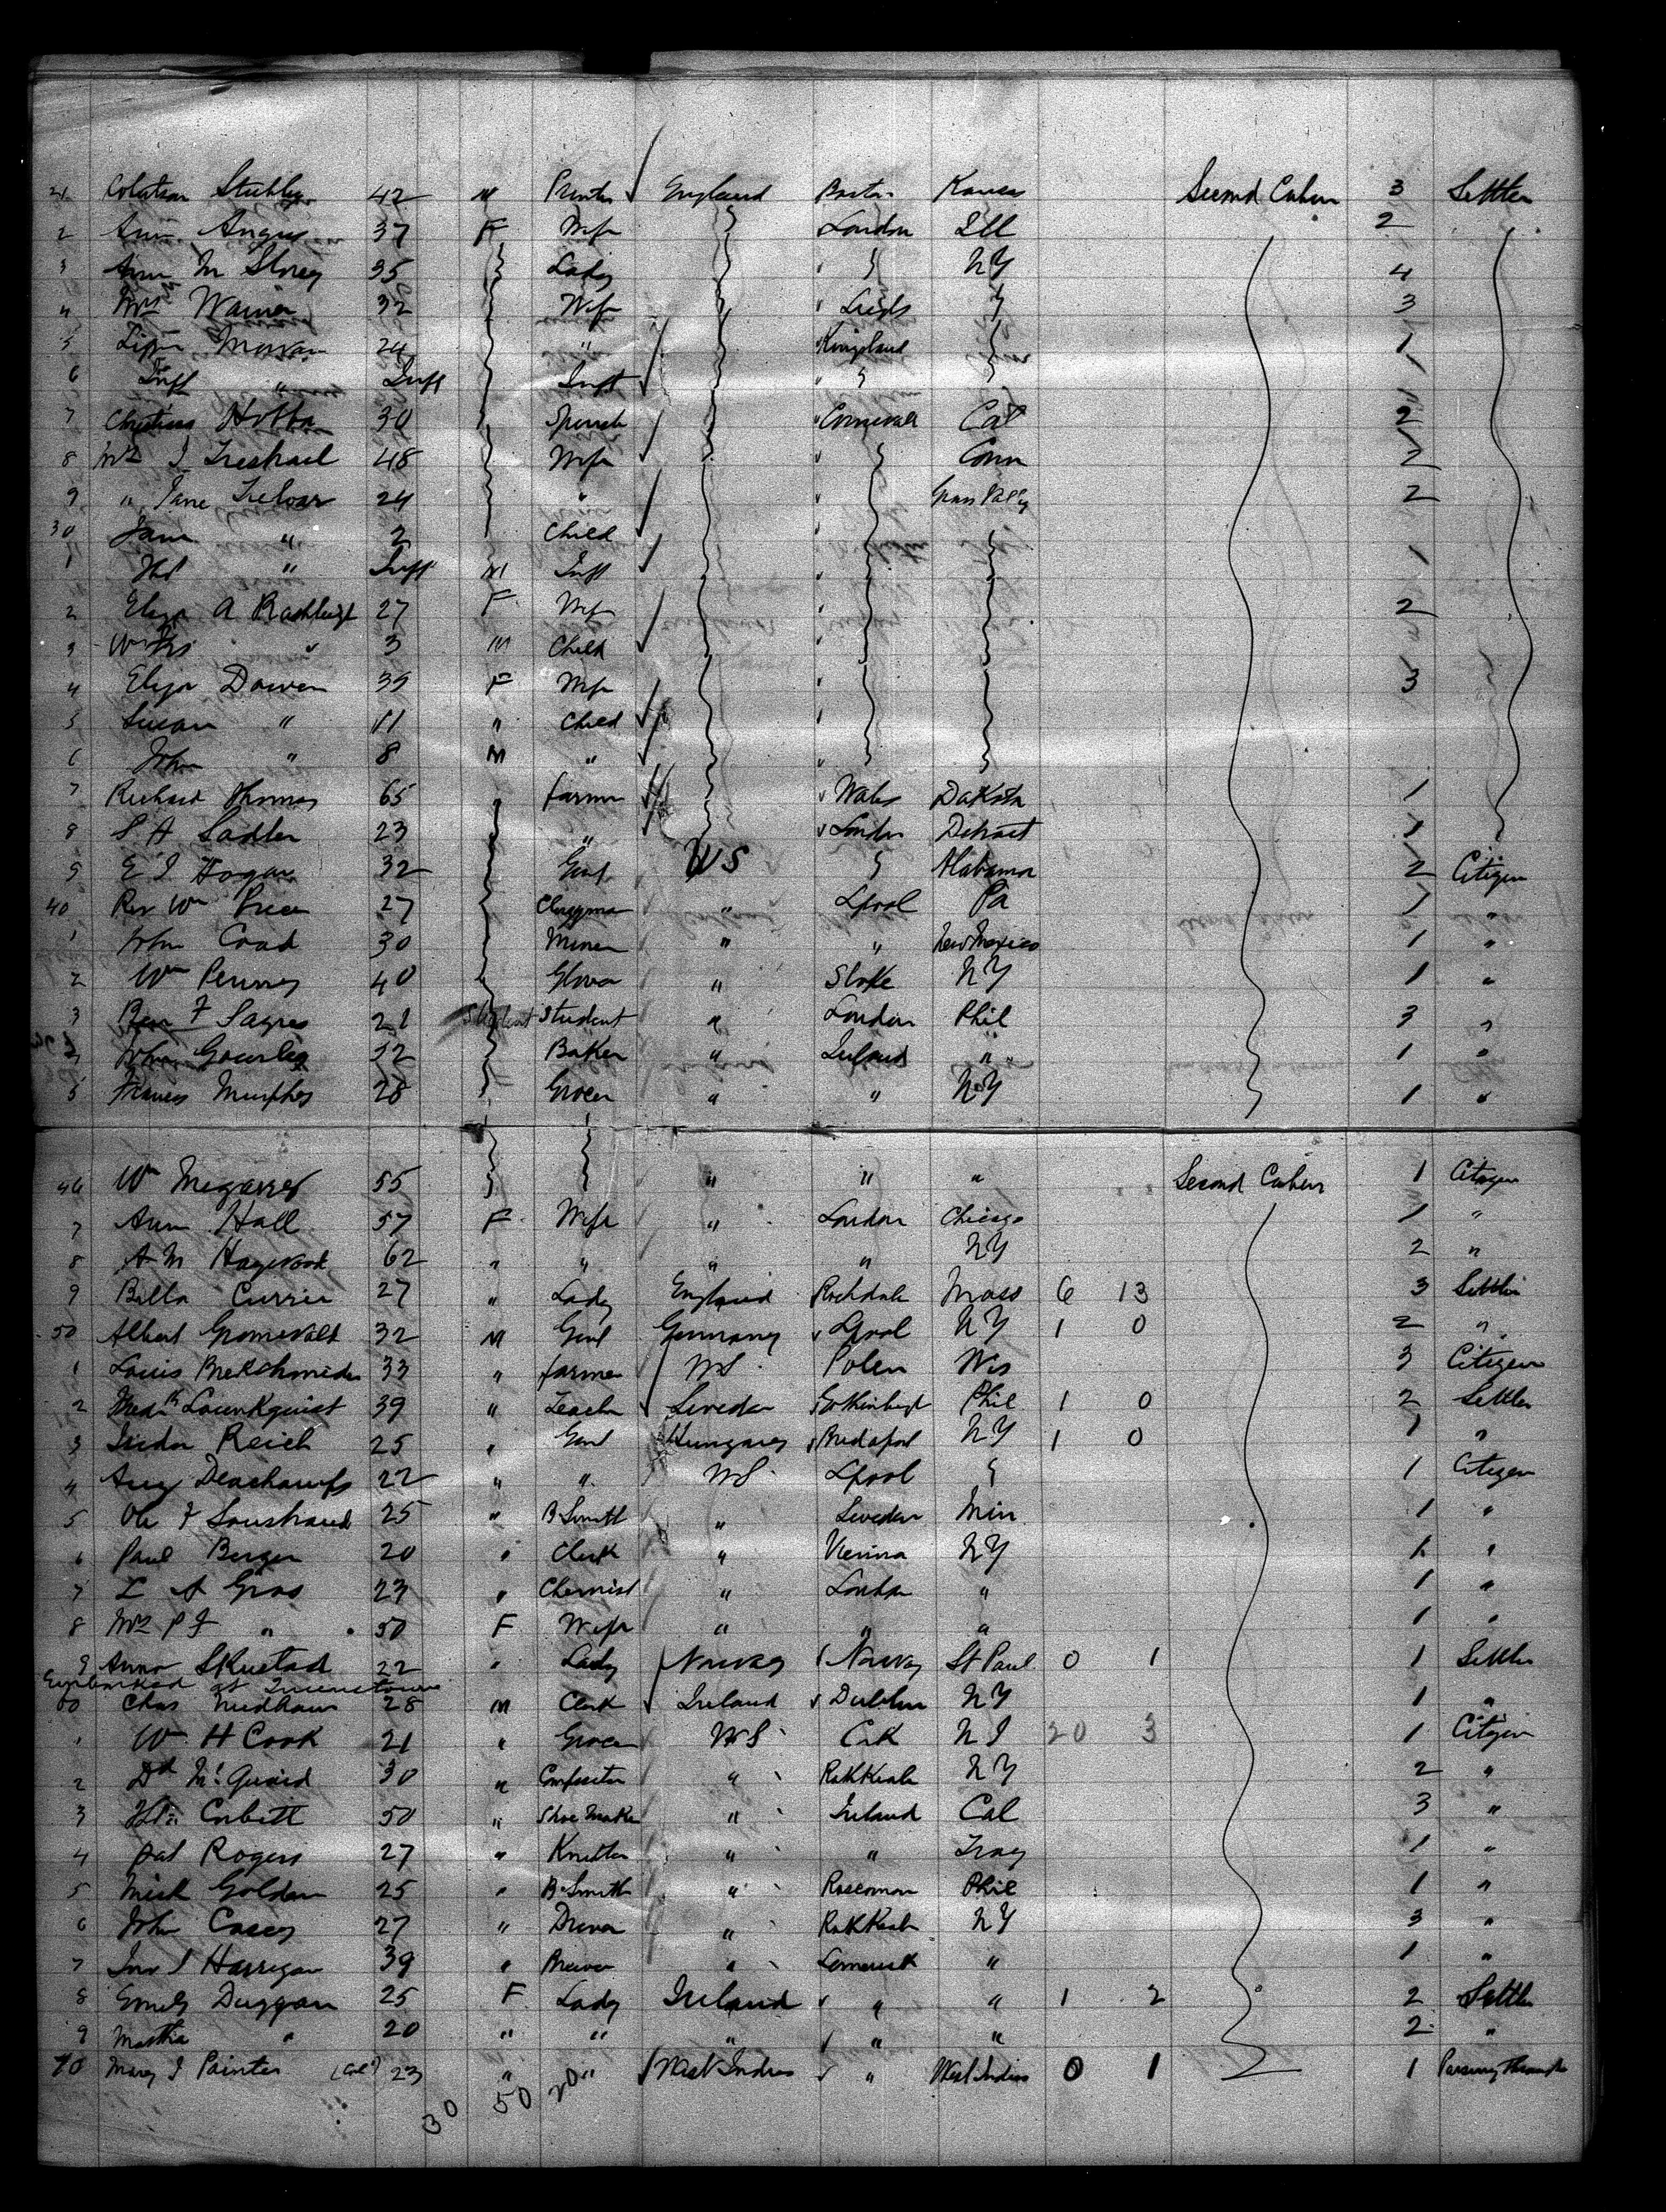 21 Stubley 42 M Printer England Kansas Second Cabin 3 Settler
2 Ann Angus 37 F Wife London Ill 2
3 Ann M Storey 35 Lady NY 4
4 Mrs Warner 32 Wife Leeds 3
5 Moran 24 " Kingsland 1
6 Inft " Inft Inft
7 Christiana 30 Cornwall Cal 2
8 Mrs J Trestrail 48 Wife Conn 2
9 " Jane Treloar 24 " Grass Vally 2
30 Jane " 2 Child
1 " Inft M Inft 1
2 Eliza A Rashleigh 27 F Wife 2
3 " 3 M Child
4 Eliza Dawen 35 F Wife 3
5 Susan " 11 " Child
6 John " 8 M "
7 Richard Thomas 65 " farmer Wales Dakota 1
8 S A Sadler 23 " London Detroit 1
9 E J Hogan 32 Gent US Alabama 2 Citizen
40 Rev Wm Price 27 Clergyman " Lpool Pa 1 "
1 John Coad 30 Miner " " New Mexico 1 "
2 Wm Penney 40 " Stoke NY 1 "
3 Ben F Sagres 21 Student Student " London Phil 3 "
4 John Gourley 32 Baker " Ireland " 1 "
5 Frances Murphy 28 Grocer " " NY 1 "
46 Wm Megarrey 55 " " " Second Cabin 1 Citizen
7 Ann Hall 57 F Wife " London Chicago 1 "
8 A M Haywood 62 " " " " NY 2 "
9 Bella Currie 27 " Lady England Rochdale Mass 6 13 3 Settler
50 Albert 32 M Gent Germany Lpool NY 1 0 2 "
1 Louis Bretschmider 33 " farmer US Polen Wis 3 Citizen
2 39 " Teacher Sweden Phil 1 0 2 Settler
3 Isidor Reich 25 " Gent Hungary NY 1 0 1 "
4 Aug Deschamps 22 " " US Lpool 1 Citizen
5 Ole F 25 " B Smith " Sweden Min 1 "
6 Paul Berger 20 " Clerk " Vienna NY 1 "
7 L A Gros 23 " Chemist " London " 1 "
8 Mrs P J " 50 F Wife " " " 1 "
9 Anna Skustad 22 " Lady Norway Norway St Paul 0 1 1 Settler
Embarked at Queenstown
60 Chas Needham 28 M Clerk Ireland Dublin NY 1 "
1 W H Cook 21 " Grocer US Cork N J 20 3 1 Citizen
2 Dd McQuaid 30 " Compositor " Rathkeale NY 2 "
3 Corbett 50 " Shoe Maker " Ireland Cal 3 "
4 Pat Rogers 27 " " " Troy 1 "
5 Mich Golden 25 " B Smith " Roscomon Phil 1 "
6 John Casey 27 " " Rathkeale NY 3 "
7 Jno J Harrigan 39 " " Limerick " 1 "
8 Emily Duggan 25 F Lady Ireland " " 1 2 2 Settler
9 Martha " 20 " " " " " 2 "
70 Mary J Painter 23 " " West Indies " West Indies 0 1 1 Passing through
30 50 20